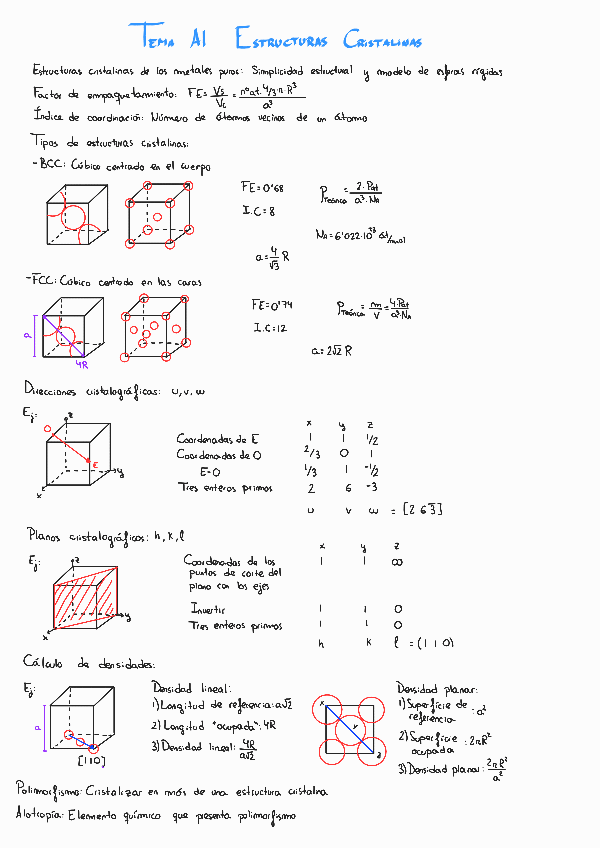 TEMA A1 ESTRUCTURAS CRISTALINAS
Estructuras cristalinas de los metales puros: Simplicidad estructural y modelo de esferas rígidas
Factor de empaquetamiento: FE = Vs/Vc = nºat·4/3·π·R³/a³
Índice de coordinación: Número de átomos vecinos de un átomo
Tipos de estructuras cristalinas:
-BCC: Cúbico centrado en el cuerpo
FE=0'68
ρTeórica = 2·Pat/a³·NA
I.C=8
NA=6'022·10²³ at/mol
a=4/√3 R
-FCC: Cúbico centrado en las caras
FE=0'74
ρTeórica = m/V = 4·Pat/a³·NA
I.C=12
a
4R
a=2√2 R
Direcciones cristalográficas: u,v,w
Ej:
z
O
E
y
x
x y z
Coordenadas de E 1 1 1/2
Coordenadas de O 2/3 0 1
E-O 1/3 1 -1/2
Tres enteros primos 2 6 -3
u v w = [2 6 3̅]
Planos cristalográficos: h,k,l
Ej:
z
y
x
x y z
Coordenadas de los 1 1 ∞
puntos de corte del
plano con los ejes
Invertir 1 1 0
Tres enteros primos 1 1 0
h k l = (1 1 0)
Cálculo de densidades:
Ej:
a
[110]
Densidad lineal:
1) Longitud de referencia: a√2
2) Longitud "ocupada": 4R
3) Densidad lineal: 4R/a√2
Densidad planar:
1) Superficie de
referencia : a²
2) Superficie
ocupada : 2πR²
3) Densidad planar: 2πR²/a²
Polimorfismo: Cristalizar en más de una estructura cristalina
Alotropía: Elemento químico que presenta polimorfismo